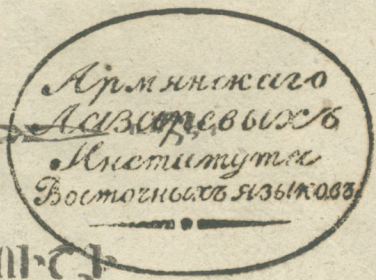 Армянскаго
Лазаревыхъ
Института
Восточныхъ языковъ